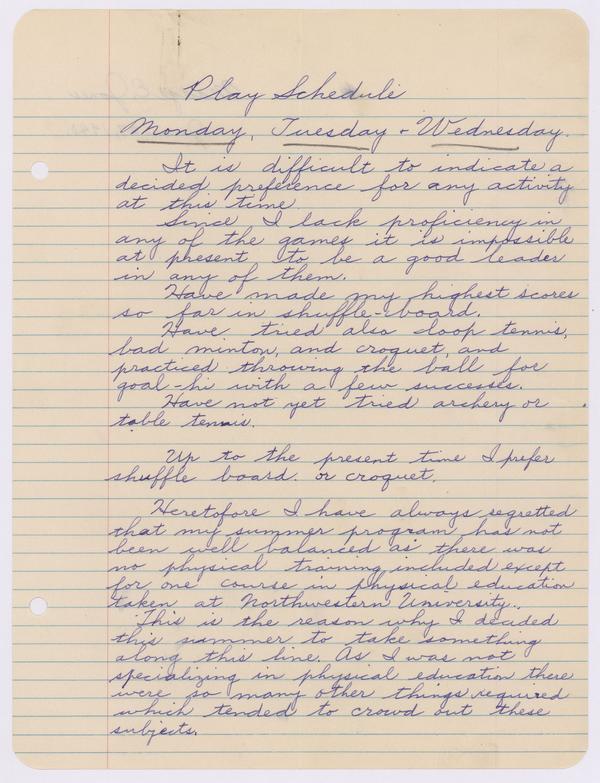 Play Schedule
Monday, Tuesday + Wednesday.
It is difficult to indicate a
decided preference for any activity
at this time.
Since I lack proficiency in
any of the games it is impossible
at present to be a good leader
in any of them.
Have made my highest scores
so far in shuffle-board.
Have tried also loop tennis,
bad minton, and croquet, and
practiced throwing the ball for
goal-hi with a few successes.
Have not yet tried archery or
table tennis.
Up to the present time I prefer
shuffle board. or croquet.
Heretofore I have always regretted
that my summer program has not
been well balanced as there was
no physical training included except
for one course in physical education
taken at Northwestern University.
This is the reason why I decided
this summer to take something
along this line. As I was not
specializing in physical education there
were so many other things required
which tended to crowd out these
subjects.